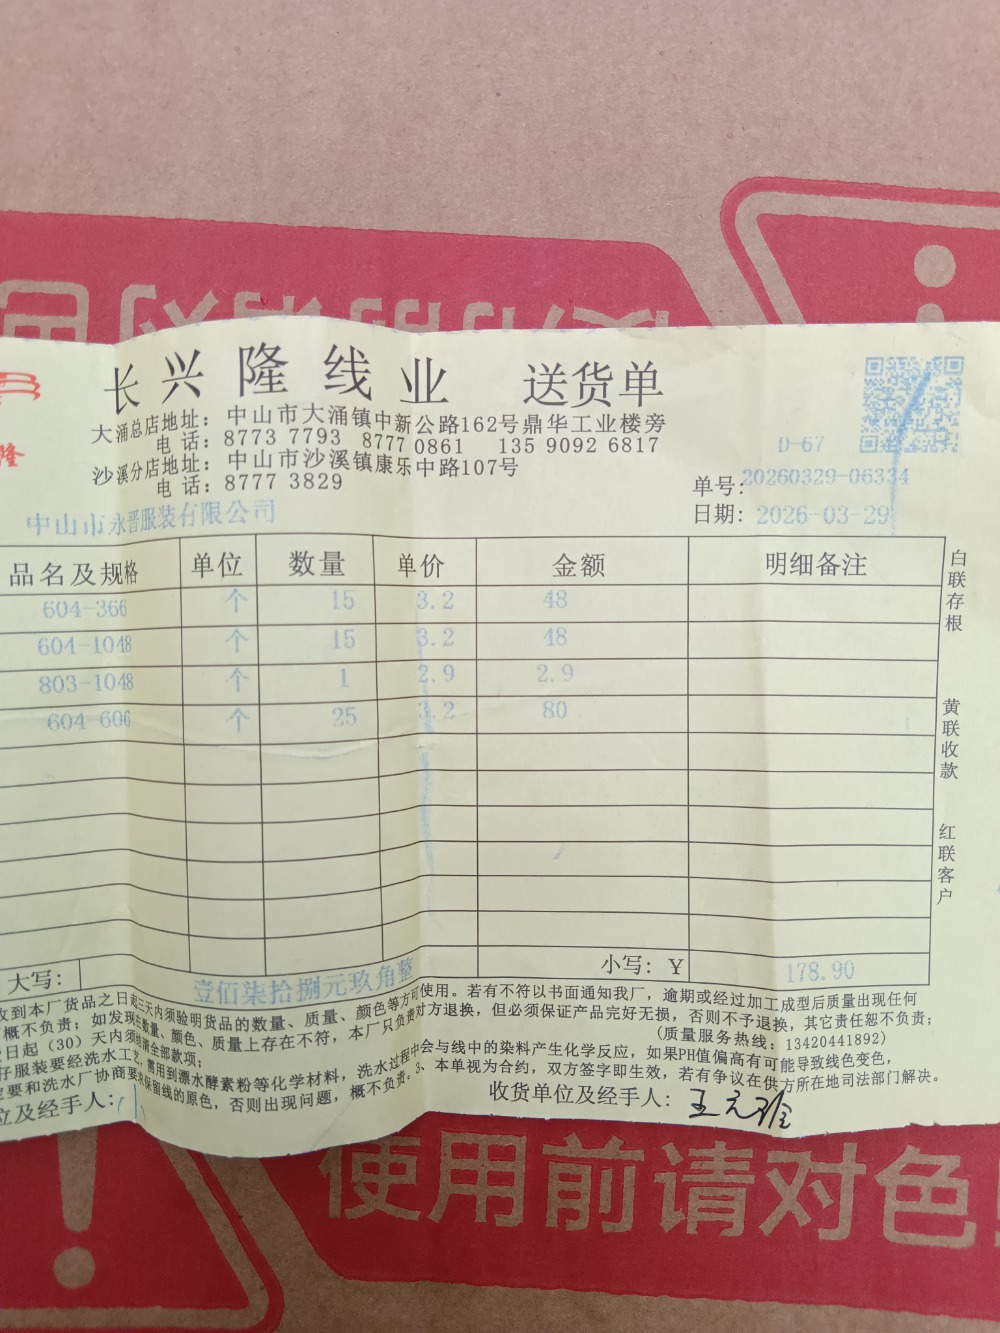 长兴隆线业 送货单
隆
大涌总店地址：中山市大涌镇中新公路162号鼎华工业楼旁
电 话：8773 7793 8777 0861 135 9092 6817
沙溪分店地址：中山市沙溪镇康乐中路107号
电 话：8777 3829
D-67
单号：20260329-06334
日期：2026-03-29
中山市永晋服装有限公司
品名及规格 单位 数量 单价 金额 明细备注
604-366 个 15 3.2 48
604-1048 个 15 3.2 48
803-1048 个 1 2.9 2.9
604-606 个 25 3.2 80
白联存根
黄联收款
红联客户
大写： 壹佰柒拾捌元玖角整 小写：￥ 178.90
收到本厂货品之日起三天内须验明货品的数量、质量、颜色等方可使用。若有不符以书面通知我厂，逾期或经过加工成型后质量出现任何
概不负责；如发现在数量、颜色、质量上存在不符，本厂只负责对方退换，但必须保证产品完好无损，否则不予退换，其它责任恕不负责；
日起（30）天内须结清全部款项； (质量服务热线：13420441892)
仔服装要经洗水工艺，需用到漂水酵素粉等化学材料，洗水过程中会与线中的染料产生化学反应，如果PH值偏高有可能导致线色变色，
要和洗水厂协商要求保留线的原色，否则出现问题，概不负责。3、本单视为合约，双方签字即生效，若有争议在供方所在地司法部门解决。
位及经手人： 收货单位及经手人：
使用前请对色